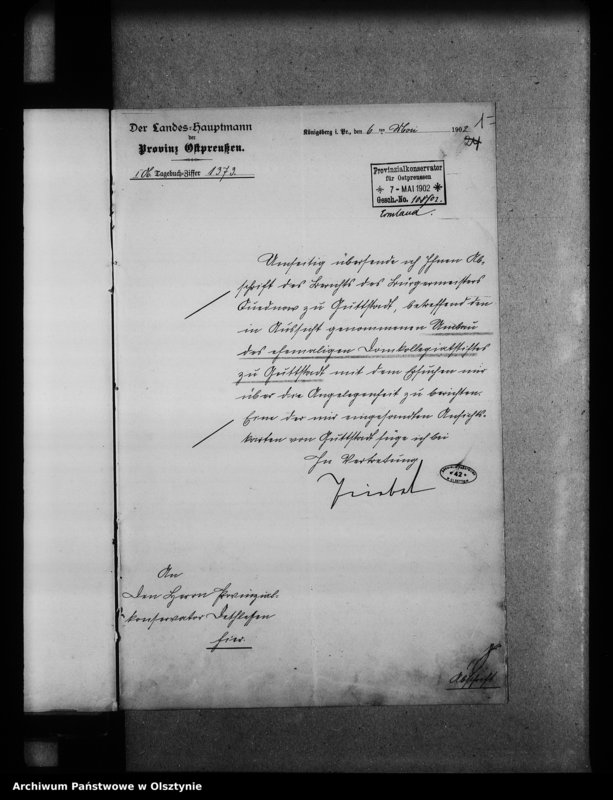 Der Landes-Hauptmann
der
Provinz Ostpreußen.
Tagebuch-Ziffer 1373.
Königsberg i. Pr., den 6ten Mai 1902
1
Provinzialkonservator
für Ostpreussen
7 - MAI 1902
Gesch.-No.
Ermland.
Umseitig übersende ich Ihnen Ab-
schrift des Berichts des Bürgermeisters
zu Guttstadt, betreffend den
in Aussicht genommenen Umbau
des ehemaligen Domkollegiatstiftes
zu Guttstadt mit dem Ersuchen mir
über die Angelegenheit zu berichten.
Eine der mir eingesandten Ansichts-
karten von Guttstadt füge ich bei
In Vertretung
An
den Herrn Provinzial-
konservator Dethlefsen
hier.
42
Abschrift
Archiwum Państwowe w Olsztynie